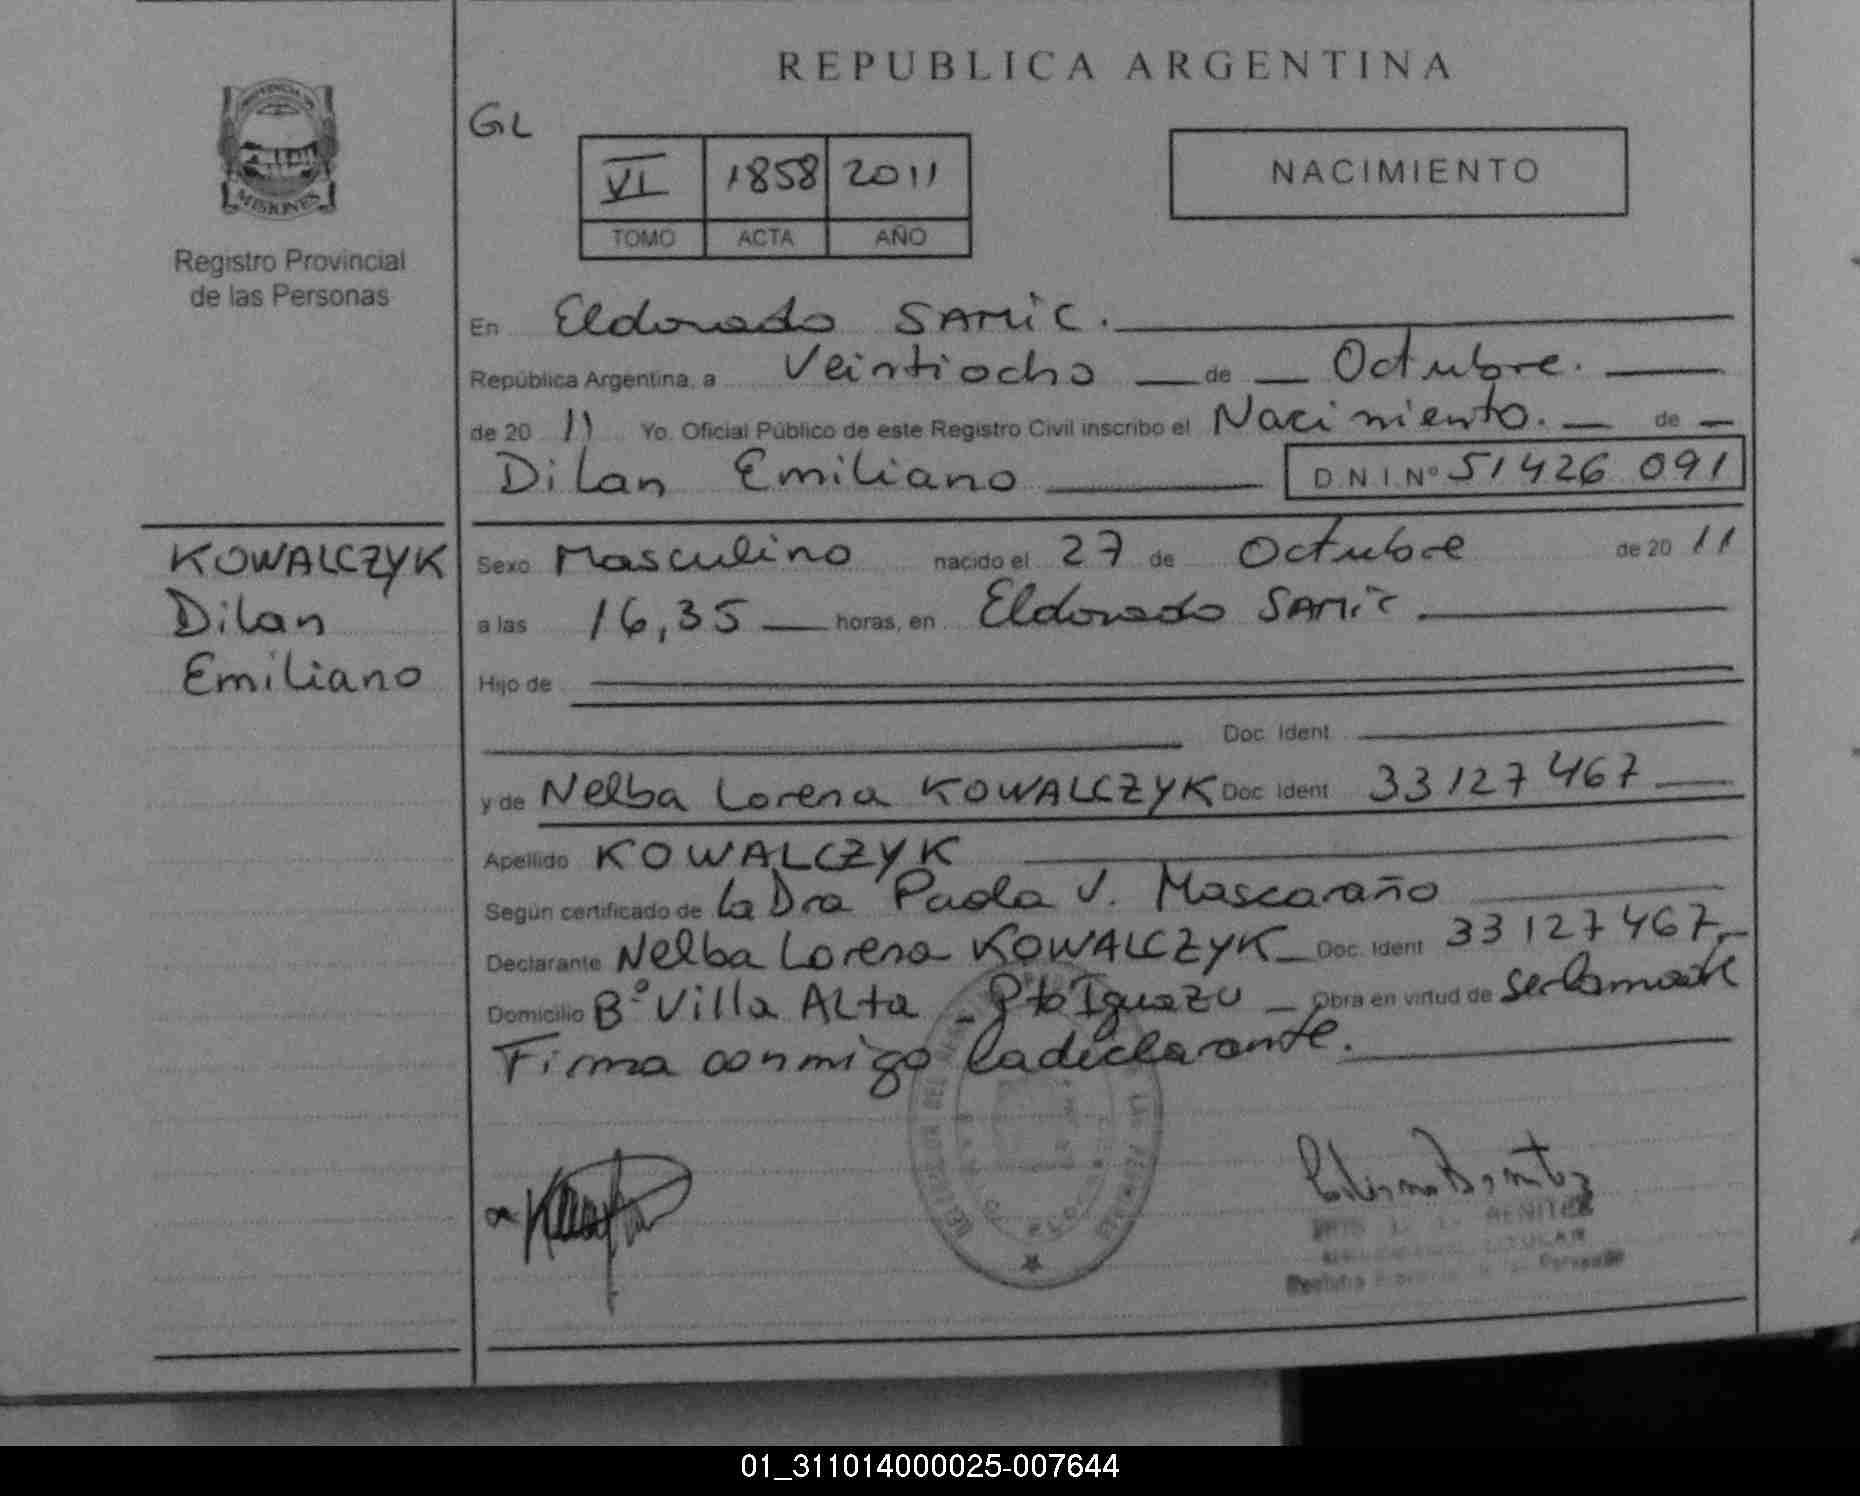 REPUBLICA ARGENTINA
PROVINCIA DE
MISIONES
Registro Provincial
de las Personas
GL
VI 1858 2011
TOMO ACTA AÑO
NACIMIENTO
En Eldorado SAMIC.
República Argentina, a Veintiocho de Octubre.
de 20 11 Yo. Oficial Público de este Registro Civil inscribo el Nacimiento. de
Dilan Emiliano D.N.I.Nº 51426 091
KOWALCZYK
Dilan
Emiliano
Sexo Masculino nacido el 27 de Octubre de 20 11
a las 16,35 horas, en Eldorado SAMIC
Hijo de
Doc. Ident
y de Nelba Lorena KOWALCZYK Doc. Ident 33127467
Apellido KOWALCZYK
Según certificado de La Dra Paola V. Mascaraño
Declarante Nelba Lorena KOWALCZYK Doc. Ident 33127467
Domicilio Bº Villa ALta - Pto Iguazu - Obra en virtud de ser la madre
Firma conmigo la declarante.
BENITEZ
TITULAR
01_311014000025-007644